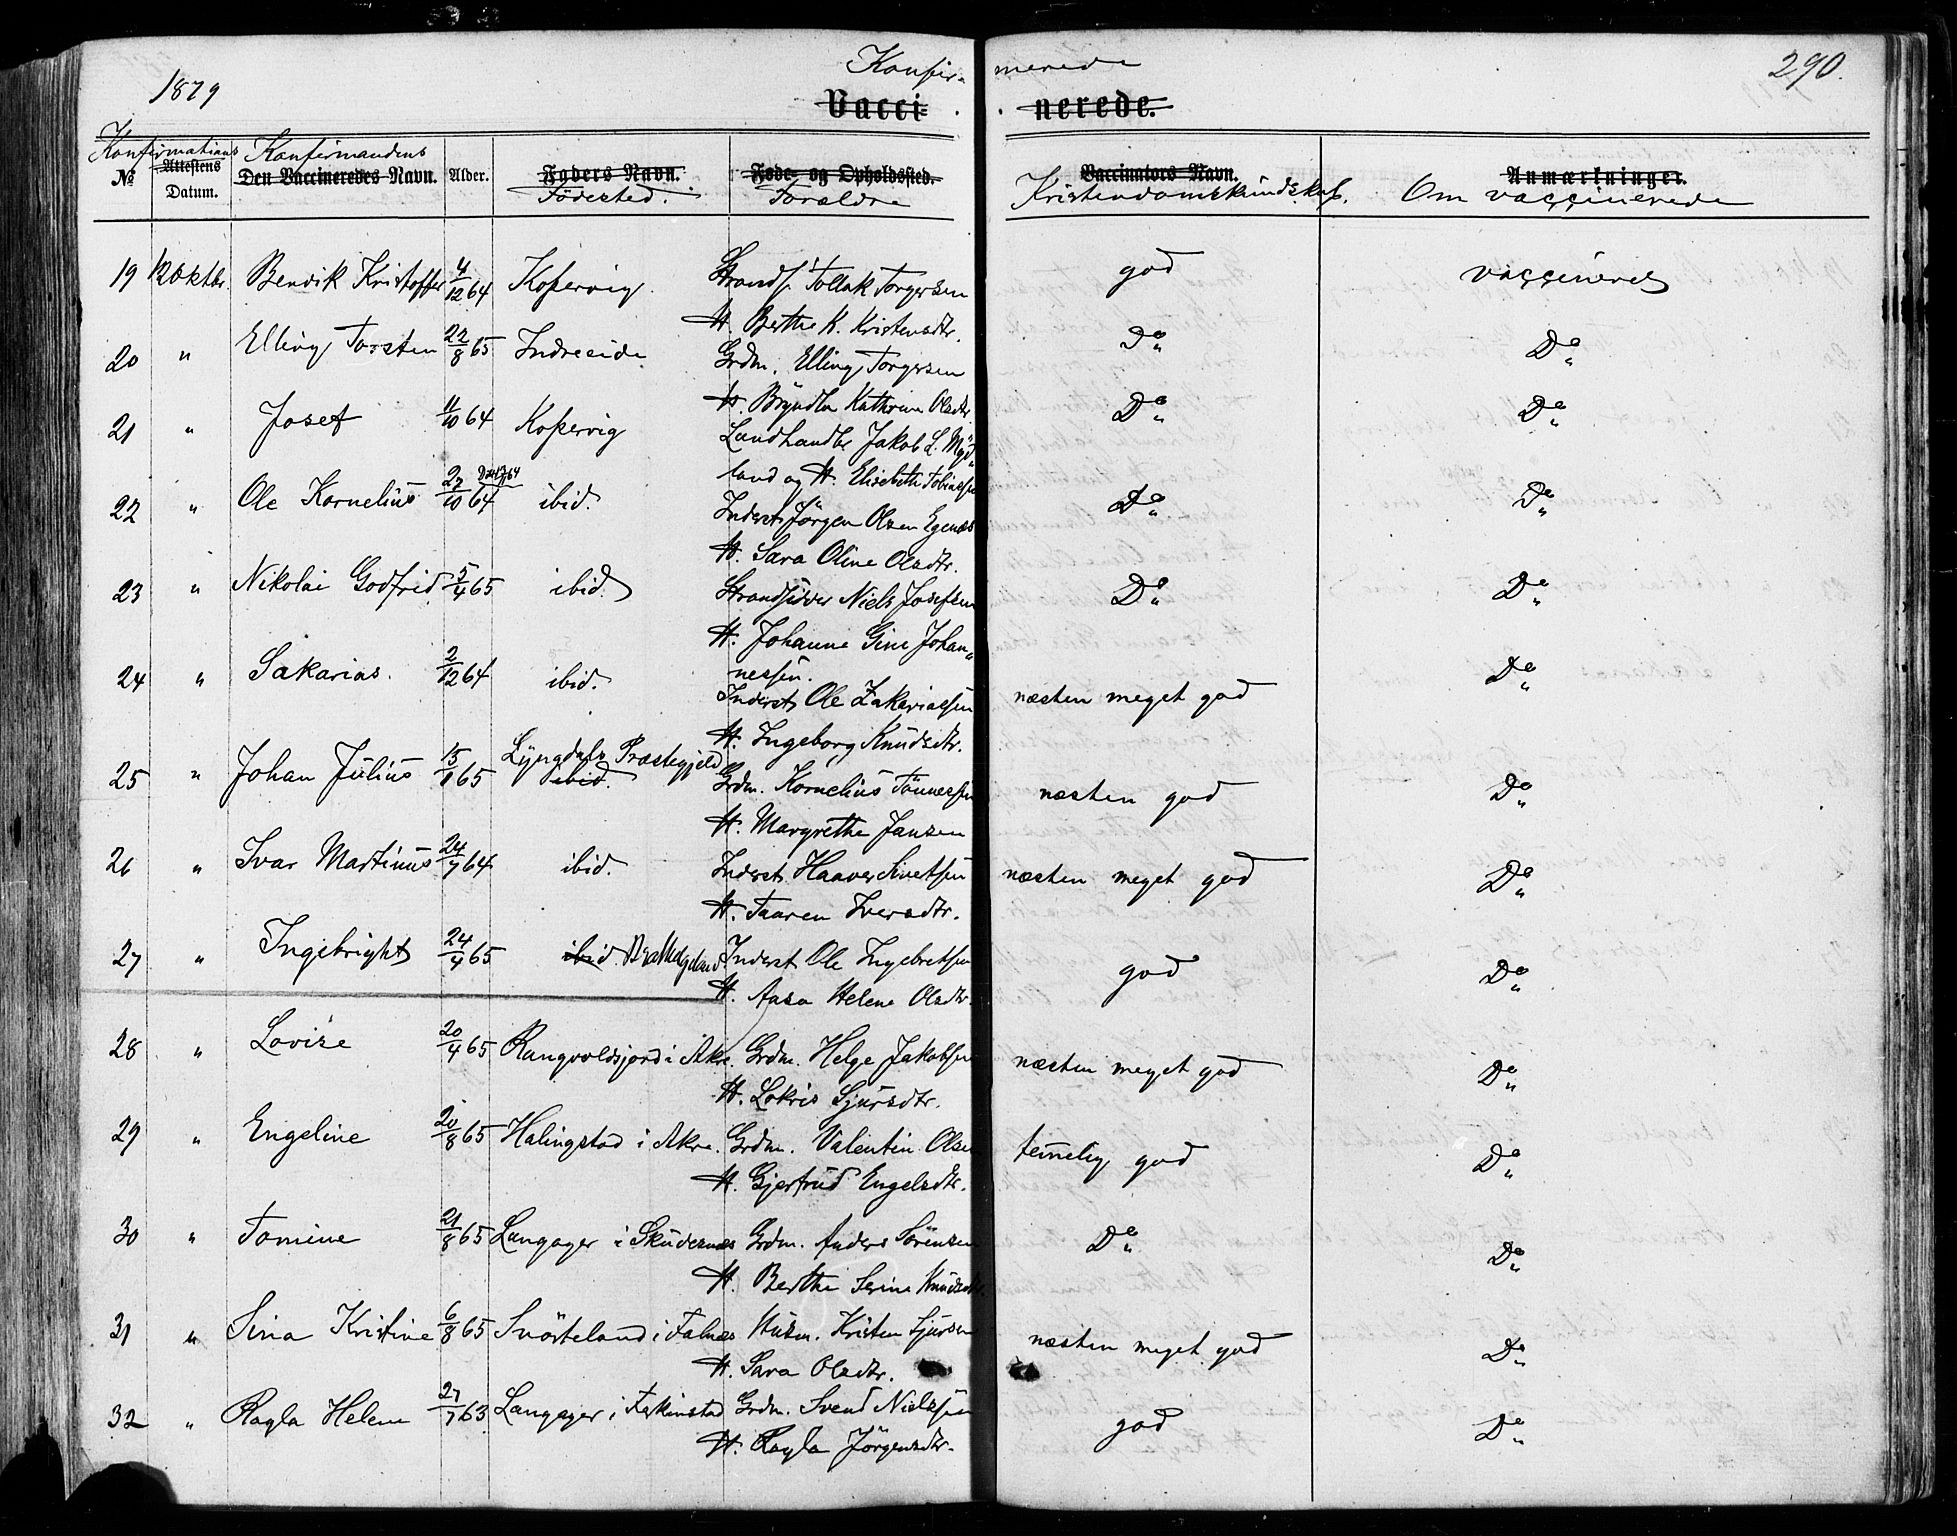 1879 Konfir- merede 290.
Vacci- nerede.
Konfirmations Konfirmandens
No Attestens Datum. Den Vaccineredes Navn. Alder. Faders Navn. Føde- og Opholdssted. Vaccinators Navn. Anmærkninger.
Födested. Forældre Kristendomskundskab. Om vaccinerede
19 12 Oktbr. Bendik Kristoffer 4/12 64 Kopervig. Strands. Tollak Torgersen god vaccineret
H. Berthe K. Kristensdtr.
20 " Elling Torsten 22/8 65 Indreeide Grdm. Elling Torgersen Do Do
H. Bryndla Kathrine Olsdtr
21 " Josef 4/10 64 Kopervig Landhandler Jakob L. Myd- Do Do
land og H. Elisabeth Tobiassen
22 " Ole Kornelius 27/10 64 ibid. Inderst Jörgen Olsen Egenæs Do Do
H. Sara Oline Olsdtr.
23 " Nikolai Godfrid 5/4 65 ibid. Strandsidder Niels Josefsen Do Do
H. Johanne Gine Johan-
nessen.
24 " Sakarias. 2/12 64 ibid. Inderst Ole Zakariassen næsten meget god Do
H. Ingeborg Knudsdtr.
25 " Johan Julius 15/1 65 Lyngdals Præstegjeld ibid. Grdm. Kornelius Tönnessen næsten god Do
H. Margrethe Jansen
26 " Ivar Martinus 24/7 64 ibid. Inderst Haaver Sivertsen næsten meget god Do
H. Taaren Iversdtr.
27 " Ingebright 24/4 65 ibid. Inderst Ole Ingebretsen god Do
H. Aasa Helene Olsdtr.
28 " Lovise 20/4 65 Rangvoldsjord i Akre. Grdm. Helge Jakobsen næsten meget god Do
H. Lokris Sjursdtr.
29 " Engeline 20/8 65 Halingstad i Akre. Grdm. Valentin Olsen temelig god Do
H. Gjertrud Engelsdtr.
30 " Tomine 21/8 65 Langager i Skudesnæs Grdm. Anders Sörensen Do Do
H. Berthe Serine Knudsdtr.
31 " Sina Kristine 6/8 65 Snörteland i Falnæs Husm. Kristen Sjursen næsten meget god Do
H. Sara Olsdtr.
32 " Ragla Helene 27/7 63 Langager i Ferkinstad Grdm. Svend Nielsen god Do
H. Ragla Jörgensdtr.